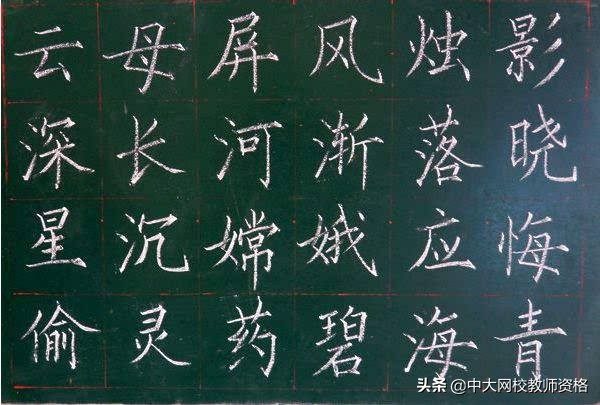 云母屏风烛影
深长河渐落晓
星沉嫦娥应悔
偷灵药碧海青
头条@中大网校教师资格